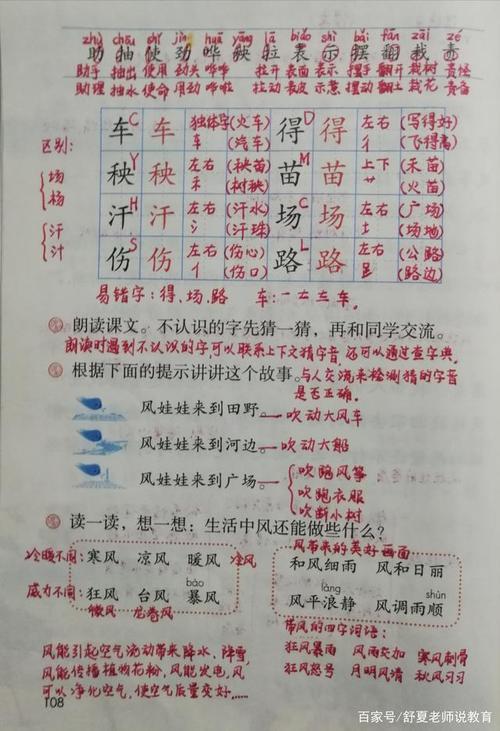 zhù chōu shǐ jìn huá yāng lā biǎo shì bǎi fān zāi zé
助 抽 使 劲 哗 秧 拉 表 示 摆 翻 栽 责
助手 抽出 使用 劲头 哗哗 拉开 表面 表示 摆手 翻开 栽树 责怪
助理 抽水 使命 用劲 哗啦 拉动 表皮 示意 摆动 翻土 栽花 责备
区别:
场
杨
汗
汁
车 C 车 独体字 车 (火车) (汽车) 得 D 得 左右 彳 (写得好) (飞得高)
秧 Y 秧 左右 禾 (秧苗) (树秧) 苗 M 苗 上下 艹 (禾苗) (火苗)
汗 H 汗 左右 氵 (汗水) (汗珠) 场 C 场 左右 土 (广场) (场地)
伤 S 伤 左右 亻 (伤心) (伤口) 路 L 路 左右 (公路) (路边)
易错字:得、场、路 车:一 车
朗读课文。不认识的字先猜一猜,再和同学交流。
朗读时遇到不认识的字,可以联系上下文猜字音,还可以通过查字典。
与人交流来检测猜的字音是否正确。
根据下面的提示讲讲这个故事。
风娃娃来到田野。—吹动大风车
风娃娃来到河边。—吹动大船
风娃娃来到广场。—吹跑风筝
吹跑衣服
吹断小树
读一读,想一想:生活中风还能做些什么?
冷暖不同: 寒风 凉风 暖风 冷风
bào
威力不同: 狂风 台风 暴风
微风 龙卷风
风带来的美好画面
和风细雨 风和日丽
làng shùn
风平浪静 风调雨顺
带风的四字词语:
狂风暴雨 风雨交加 寒风刺骨
狂风怒号 月明风清 秋风习习
风能引起空气流动带来降水、降雪,
风能传播植物花粉,风能发电,风
可以净化空气,使空气质量变好……
108
百家号/舒夏老师说教育